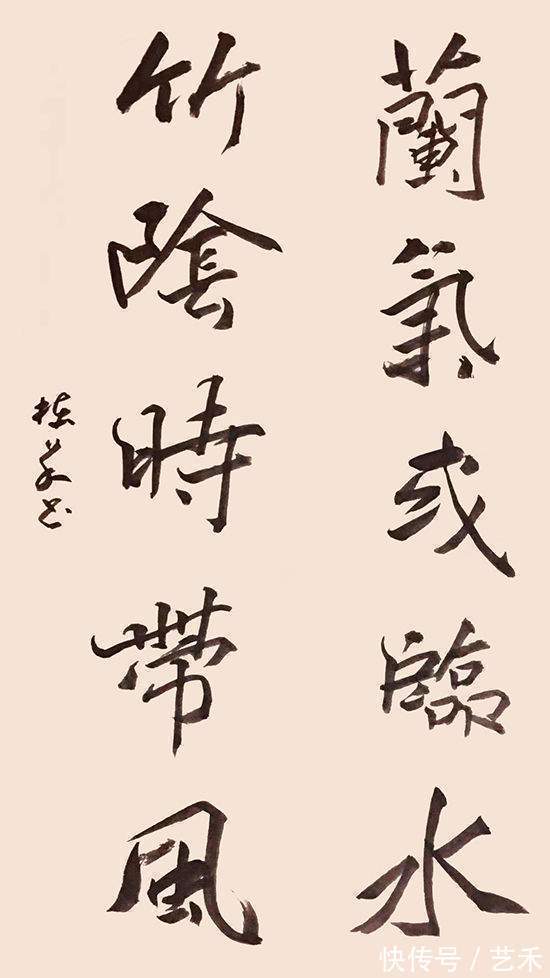 蘭氣或臨水
竹陰時帶風
书
快传号／艺禾